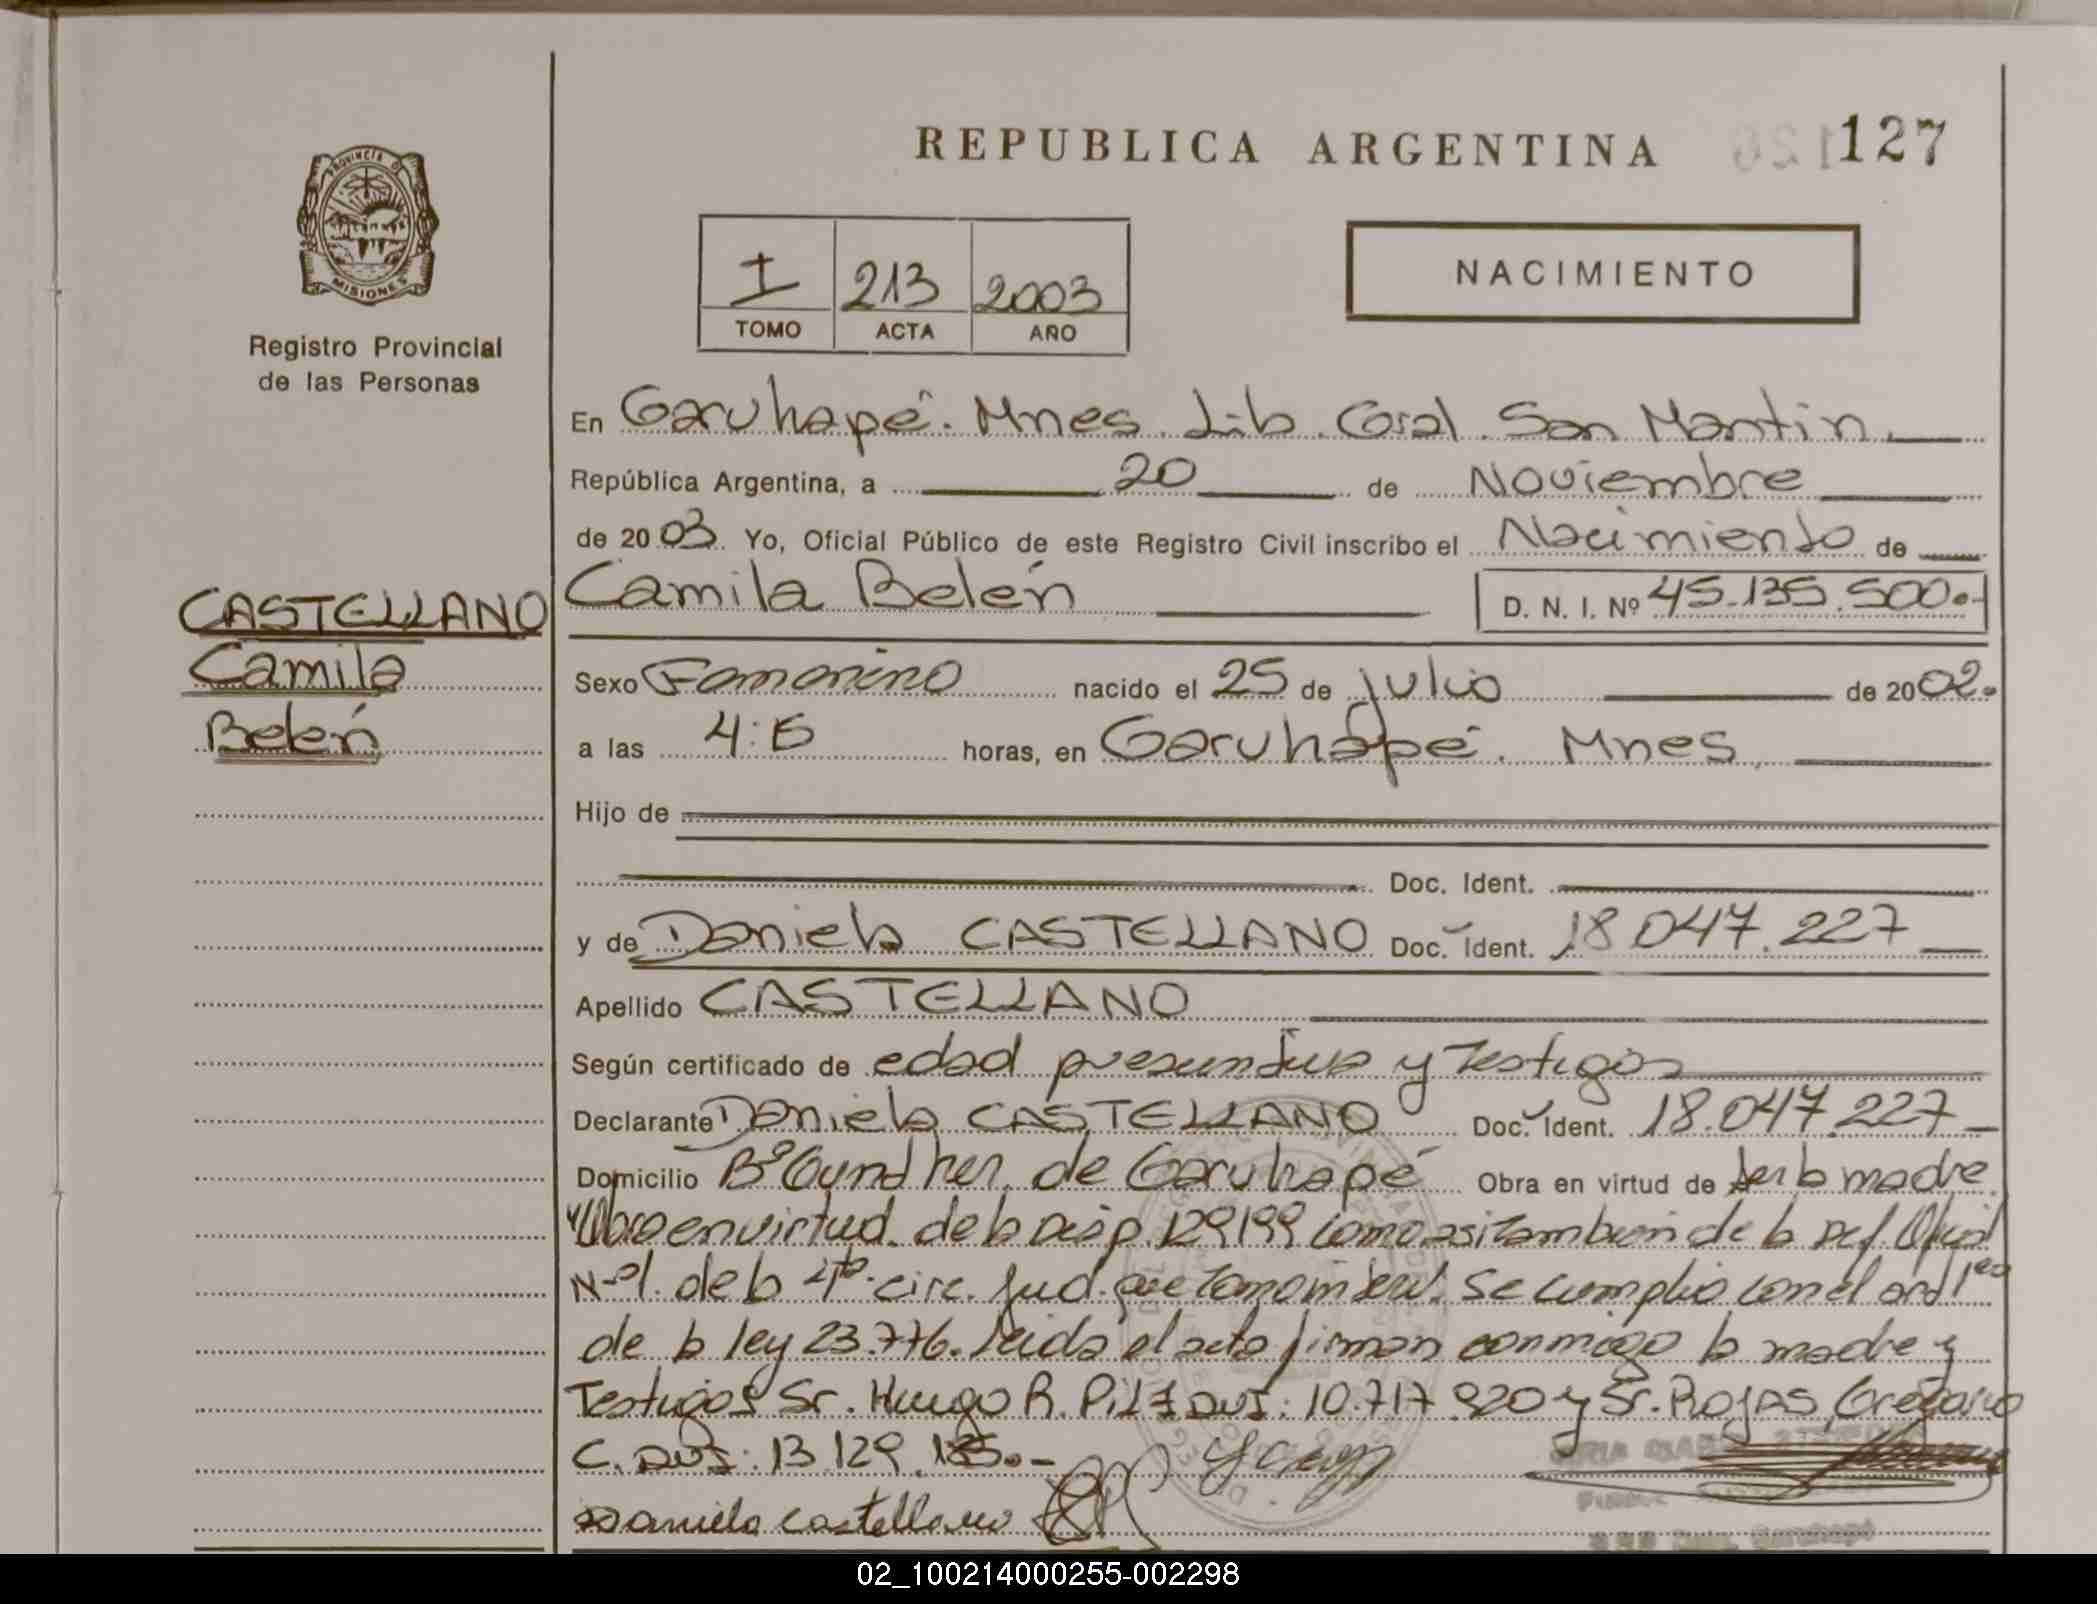 REPUBLICA ARGENTINA 127
PROVINCIA D
MISIONES
Registro Provincial
de las Personas
I 213 2003
TOMO ACTA AÑO
NACIMIENTO
En Garuhapé. Mnes. Lib. Gral. San Martin.
República Argentina, a 20 de Noviembre
de 2003 Yo, Oficial Público de este Registro Civil inscribo el Nacimiento de
Camila Belén D. N. I. Nº 45.135.500.-
CASTELLANO
Camila
Belén
Sexo Femenino nacido el 25 de julio de 2002.
a las 4: horas, en Garuhapé. Mnes.
Hijo de
Doc. Ident.
y de Daniela CASTELLANO Doc. Ident. 18.047.227
Apellido CASTELLANO
Según certificado de edad presuntiva y Testigos
Declarante Daniela CASTELLANO Doc. Ident. 18.047.227
Domicilio Bº Gundher. de Garuhapé Obra en virtud de ser la madre.
en virtud. de la Disp. 129199 como asi tambien de la Def. Oficial
Nº1. de la 4ta. circ. Jud. que Se cumplio con el art 1ro
de la ley 23.776. Leida el acta firman conmigo la madre y
Testigos Sr. Hugo R. DNI: 10.717.920 y Sr. Rojas, Gregorio
C. DNI: 13.129.185.-
Daniela castellano
02_100214000255-002298